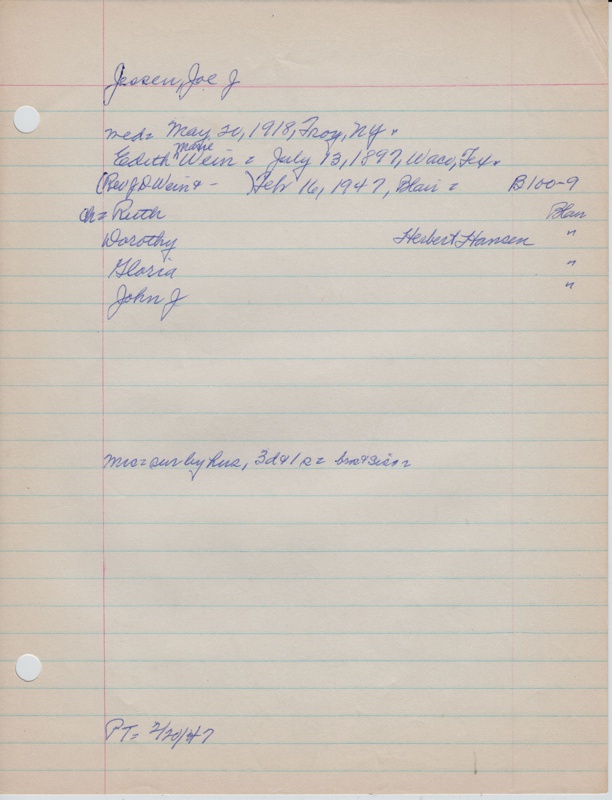 Jessen, Joe J
med= May 20, 1918, Troy, NY.
Edith Marie Wein = July 13, 1897, Waco, Tex.
(Rev J D Wein & - ) Feb 16, 1947, Blair = B100-9
ch= Ruth Blair
Dorothy Herbert Hansen "
Gloria "
John J "
mrs= sur by hus, 3d & 1s = bro & sis =
PT= 2/20/47